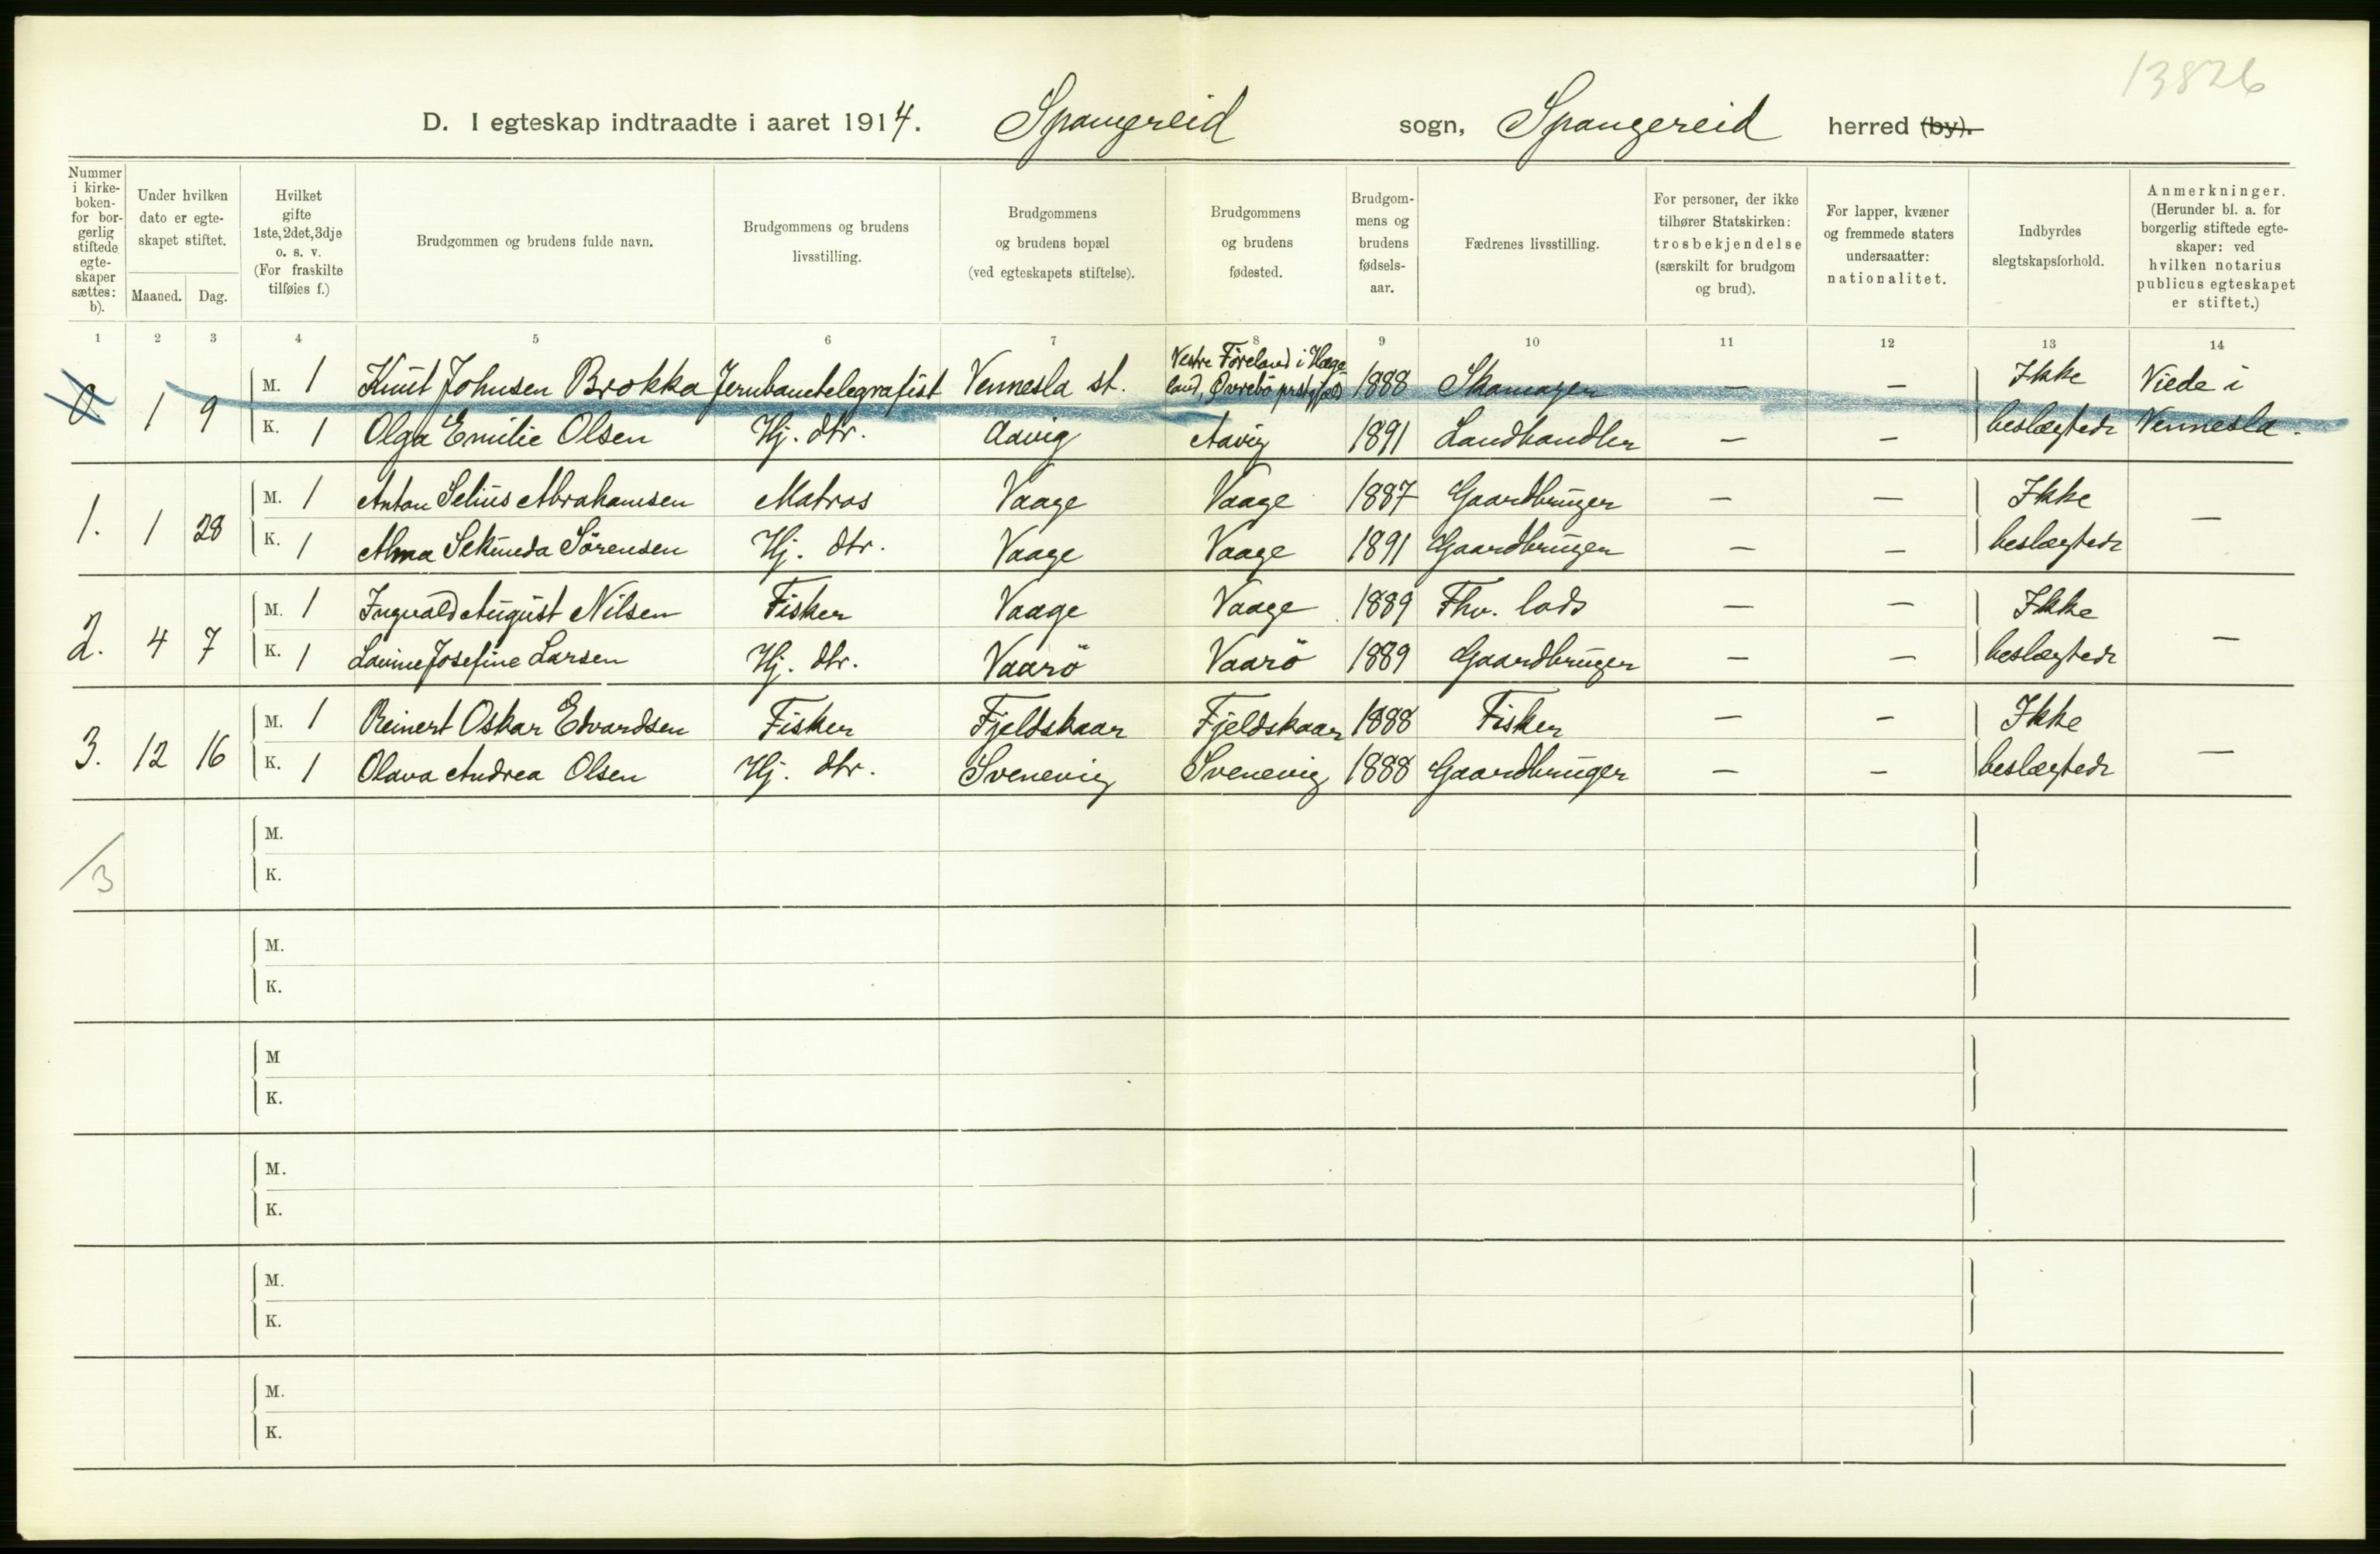 13826
D. I egteskap indtraadte i aaret 1914. Spangereid sogn, Spangereid herred (by).
Nummer i kirke-boken- for bor-gerlig stiftede egte-skaper sættes: b).
Under hvilken dato er egte-skapet stiftet.
Maaned. Dag.
Hvilket gifte 1ste, 2det, 3dje o. s. v. (For fraskilte tilføies f.)
Brudgommen og brudens fulde navn.
Brudgommens og brudens livsstilling.
Brudgommens og brudens bopæl (ved egteskapets stiftelse).
Brudgommens og brudens fødested.
Brudgom-mens og brudens fødsels-aar.
Fædrenes livsstilling.
For personer, der ikke tilhører Statskirken: trosbekjendelse (særskilt for brudgom og brud).
For lapper, kvæner og fremmede staters undersaatter: nationalitet.
Indbyrdes slegtskapsforhold.
Anmerkninger. (Herunder bl. a. for borgerlig stiftede egte-skaper: ved hvilken notarius publicus egteskapet er stiftet.)
1 2 3 4 5 6 7 8 9 10 11 12 13 14
Vestre Föreland i Hæge-
a. 1 9 M. 1 Knut Johnsen Brokka Jernbanetelegrafist Vennesla st. land, Øvrebö 1888 Skomager — — Ikke Viede i
K. 1 Olga Emilie Olsen Hj. dtr. Aavig Aavig 1891 Landhandler — — beslægtede Vennesla.
1. 1 28 M. 1 Anton Selius Abrahamsen Matros Vaage Vaage 1887 Gaardbruger — — Ikke —
K. 1 Alma Sekunda Sörensen Hj. dtr. Vaage Vaage 1891 Gaardbruger — — beslægtede
2. 4 7 M. 1 Ingvald August Nilsen Fisker Vaage Vaage 1889 Fhv. lods — — Ikke —
K. 1 Lavine Josefine Larsen Hj. dtr. Vaarö Vaarö 1889 Gaardbruger — — beslægtede
3. 12 16 M. 1 Reinert Oskar Edvardsen Fisker Fjeldskaar Fjeldskaar 1888 Fisker — — Ikke —
K. 1 Olava Andrea Olsen Hj. dtr. Svenevig Svenevig 1888 Gaardbruger — — beslægtede
M.
/3 K.
M.
K.
M
K.
M.
K.
M.
K.
M.
K.